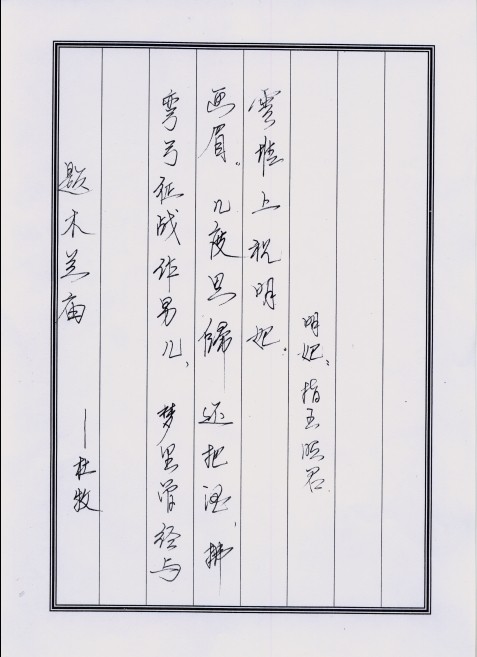 题木兰庙 ——杜牧
弯弓征战作男儿、梦里曾经与
画眉。几度思歸还把酒，拂
雲堆上祝明妃.
明妃：指王昭君.